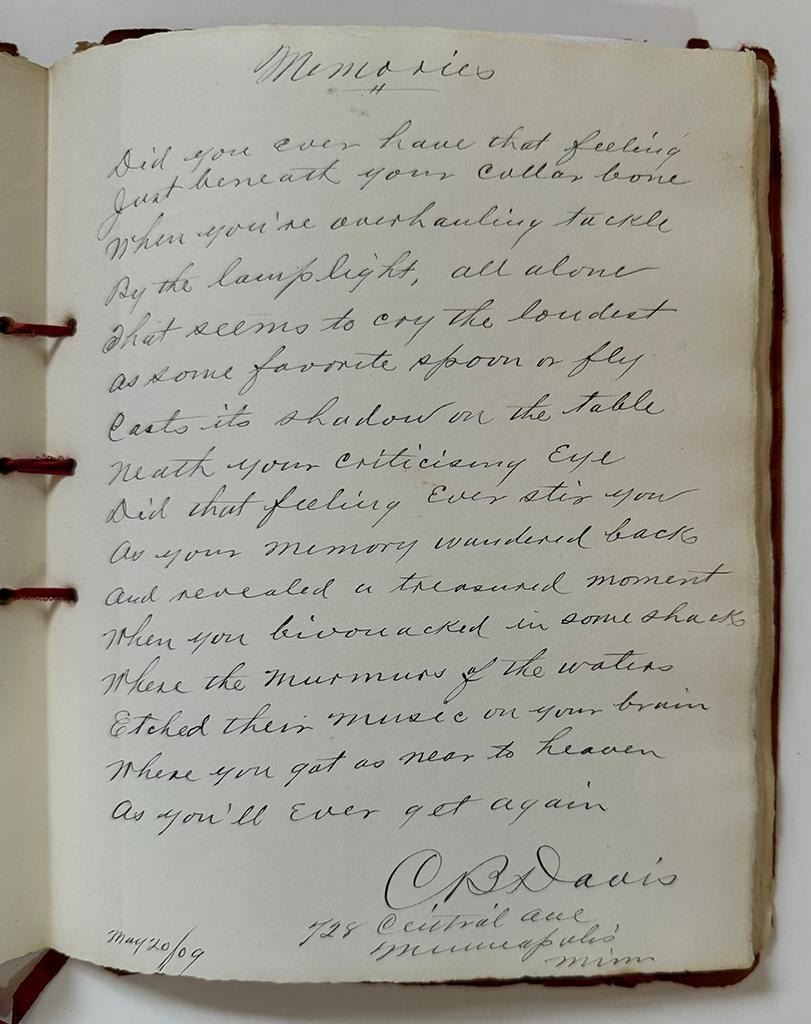 Memories
Did you ever have that feeling
Just beneath your collar bone
When you're overhauling tackle
By the lamplight, all alone
That seems to cry the loudest
As some favorite spoon or fly
Casts its shadow on the table
Neath your criticising Eye
Did that feeling Ever stir you
As your memory wandered back
And revealed a treasured moment
When you bivouacked in some shack
Where the murmurs of the waters
Etched their music on your brain
Where you got as near to heaven
As you'll Ever get again
C B Davis
728 Central Ave
Minneapolis
Minn
May 20/09